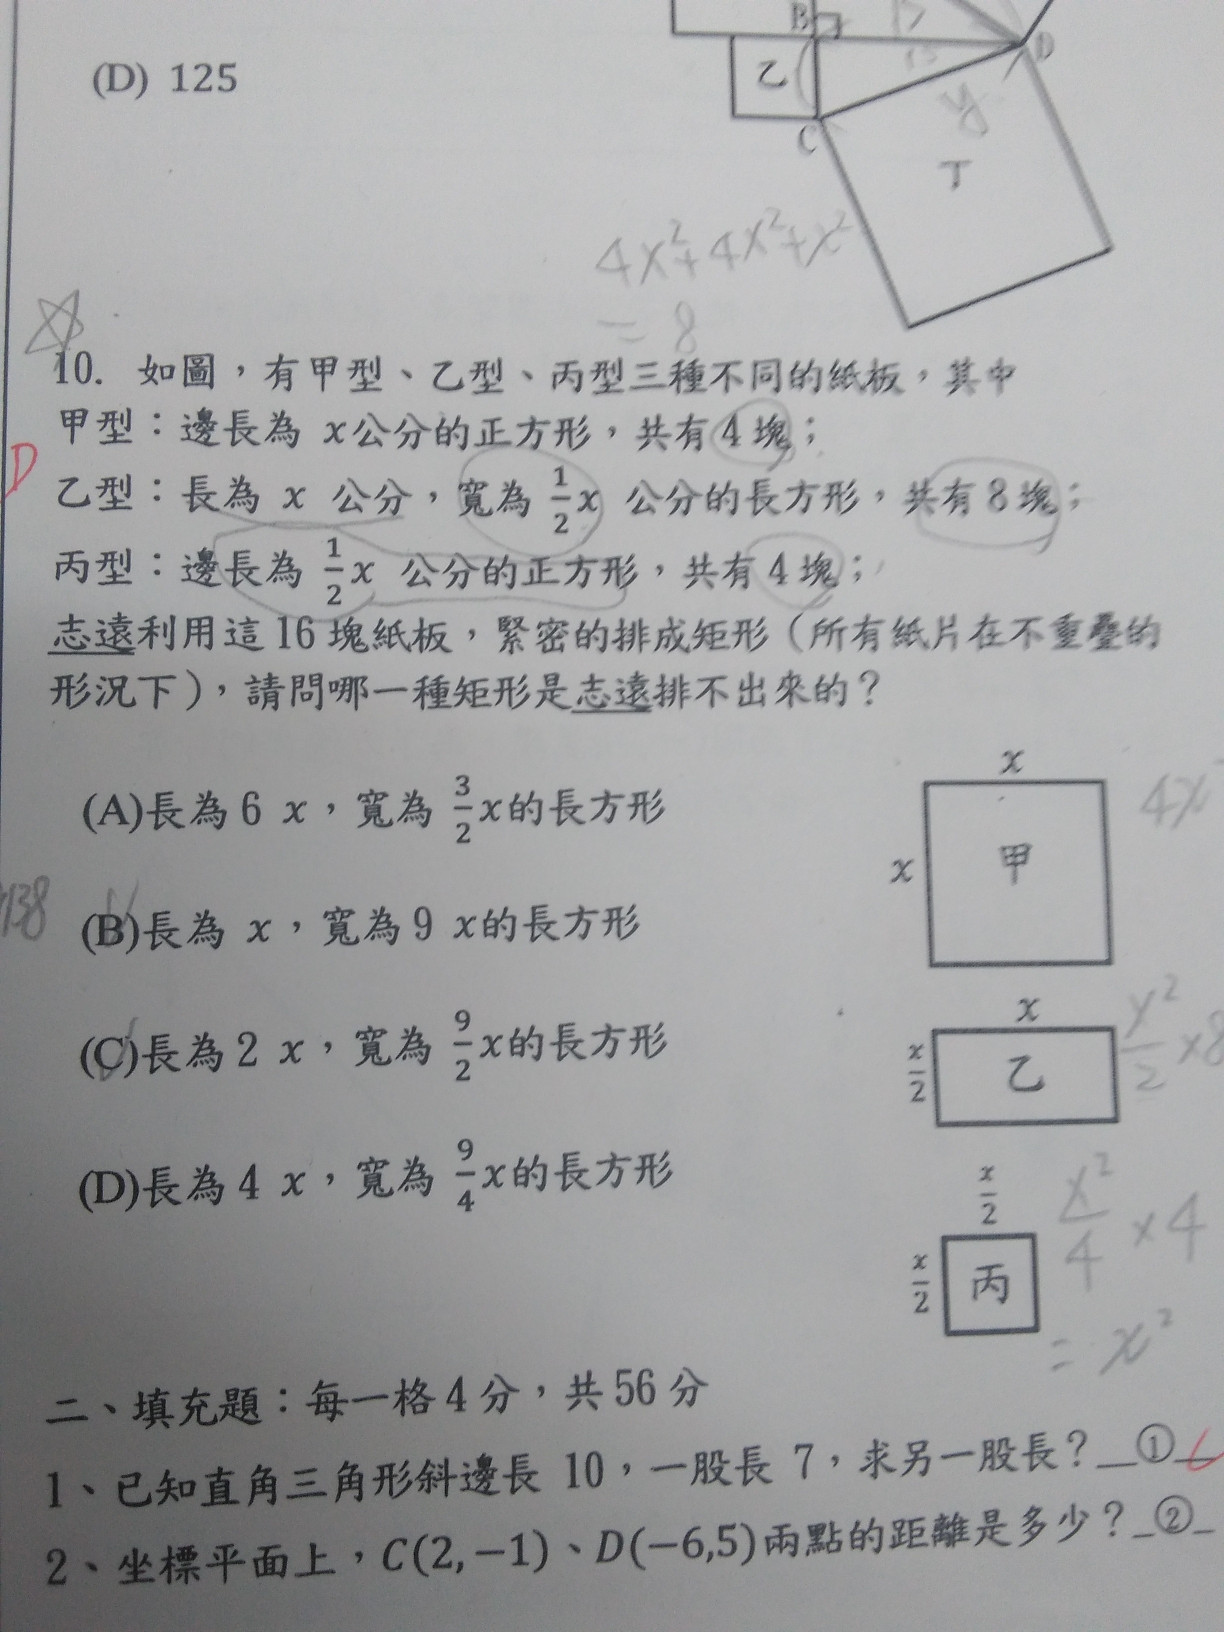 B
15
D
(D) 125
乙
15
y
C
丁
4x²+4x²+x²
= 8
10. 如圖，有甲型、乙型、丙型三種不同的紙板，其中
甲型：邊長為 x公分的正方形，共有4塊；
D
乙型：長為 x 公分，寬為 1/2 x 公分的長方形，共有8塊；
丙型：邊長為 1/2 x 公分的正方形，共有4塊；
志遠利用這16塊紙板，緊密的排成矩形（所有紙片在不重疊的
形況下），請問哪一種矩形是志遠排不出來的？
x
(A)長為6 x，寬為 3/2 x的長方形
x
甲
4x
138
(B)長為 x，寬為9 x的長方形
x
(C)長為2 x，寬為 9/2 x的長方形
x/2
乙
y²/2 ×8
(D)長為4 x，寬為 9/4 x的長方形
x/2
x²/4 ×4
x/2
丙
= x²
二、填充題：每一格4分，共56分
1、已知直角三角形斜邊長 10，一股長 7，求另一股長？＿①＿
2、坐標平面上，C(2,−1)、D(−6,5)兩點的距離是多少？_②_